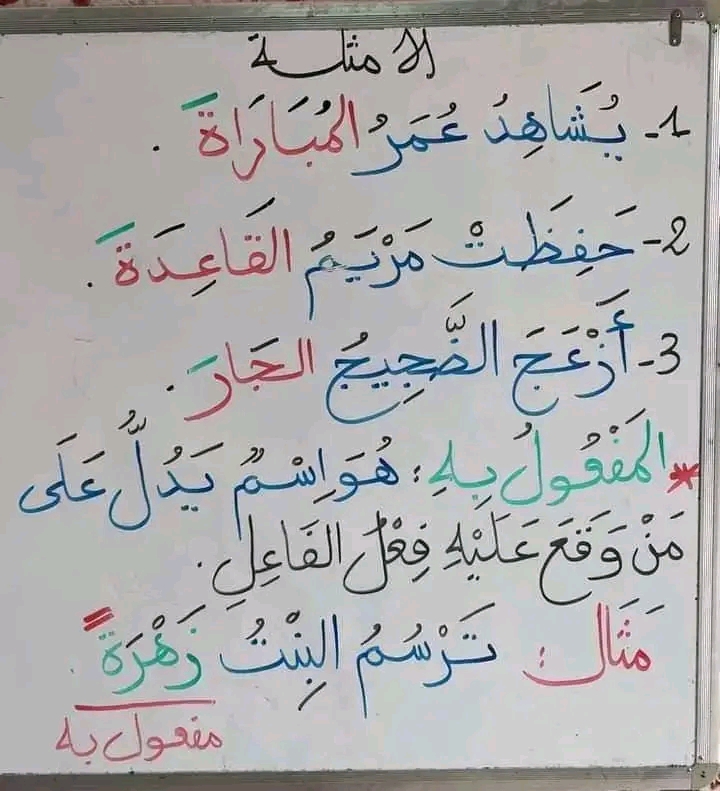 الأمثلة
1- يُشَاهِدُ عُمَرُ المُبَارَاةَ .
2- حَفِظَتْ مَرْيَمُ القَاعِدَةَ .
3- أَزْعَجَ الضَّجِيجُ الجَارَ .
* المَفْعُولُ بِهِ : هُوَ اِسْمٌ يَدُلُّ عَلَى
مَنْ وَقَعَ عَلَيْهِ فِعْلُ الفَاعِلِ .
مَثَال : تَرْسُمُ البِنْتُ زَهْرَةً .
مفعول به